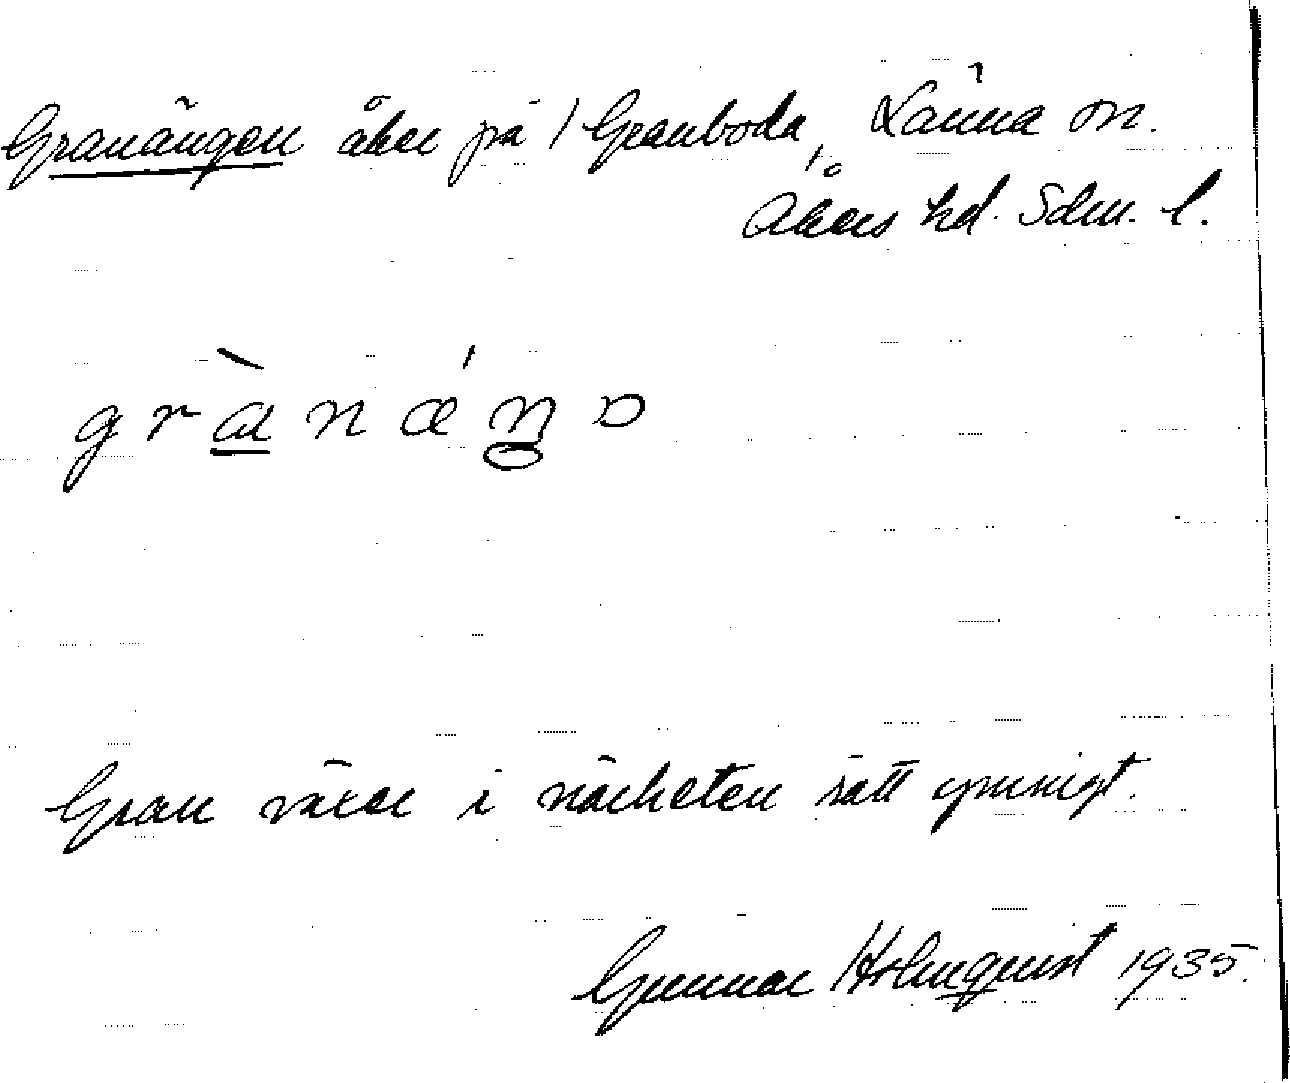 Granängen åker på / Granboda, Länna sn.
Åkers hd. Sdm. l.
grànǽŋɔ
Gran växer i närheten rätt ymnigt.
Gunnar Holmquist 1935.